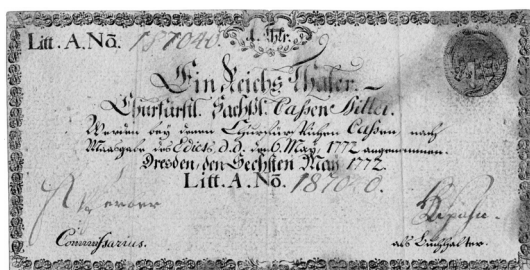 Litt. A. No. 187040.
1. Thlr.
Ein Reichs Thaler.
Churfürstl. Sächßl. Cassen Billet.
Werden bey denen Churfürstlichen Cassen, nach
Maasgabe des Edicts d. d. den 6. May, 1772 angenommen.
Dresden, den Sechsten May 1772.
Litt. A. No. 187040.
Commissarius.
als Buchhalter.